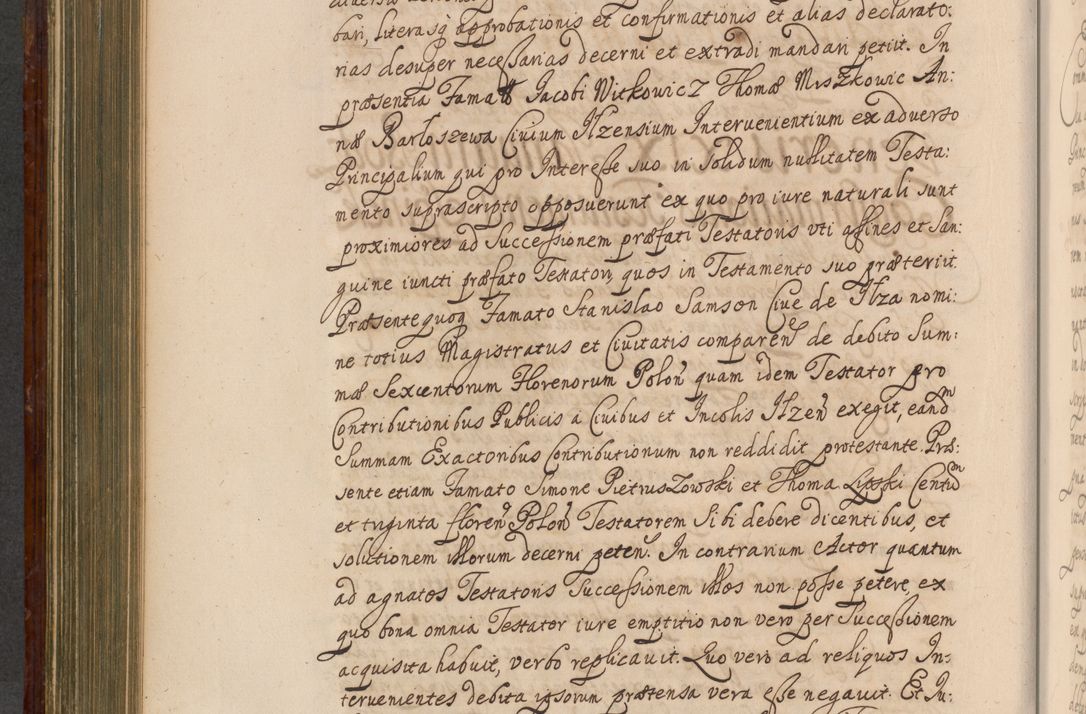 bari, literasq approbationis et confirmationis et alias declarato:
rias desuper necessarias decerni et extradi mandari petiit. In
præsentia Famatt Jacobi Witkowicz Thomæ Miszkowic An:
næ Bartoszewa Civium Ilzensium Intervenientium ex adverso
Principalium qui pro Interesse suo in solidum nullitatem Testa:
mento suprascripto opposuerunt ex quo pro iure naturali sunt
proximiores ad Successionem præfati Testatoris uti affines et San:
guine iuncti præfato Testatori, quos in Testamento suo præteriit.
Præsente quoq Famato Stanislao Samson Cive de Ilza nomi:
ne totius Magistratus et Civitatis comparen de debito Sum:
mæ Sexcentorum Florenorum Polon quam idem Testator pro
Contributionibus Publicis a Civibus et Incolis Ilzen exegit, eand
Summam Exactoribus Contributionum non reddidit protestante. Præ:
sente etiam Famato Simone Pietruszowski et Thoma Lipski Centu
et triginta floren Polon Testatorem Sibi debere dicentibus, et
solutionem illorum decerni peten. In contrarium Actor quantum
ad agnatos Testatoris Successionem illos non posse petere, ex
quo bona omnia Testator iure emptitio non vero per Successionem
acquisita habuit, verbo replicavit. Quo vero ad reliquos In:
tervenientes debita ipsorum prætensa vera esse negavit. Et Ju: